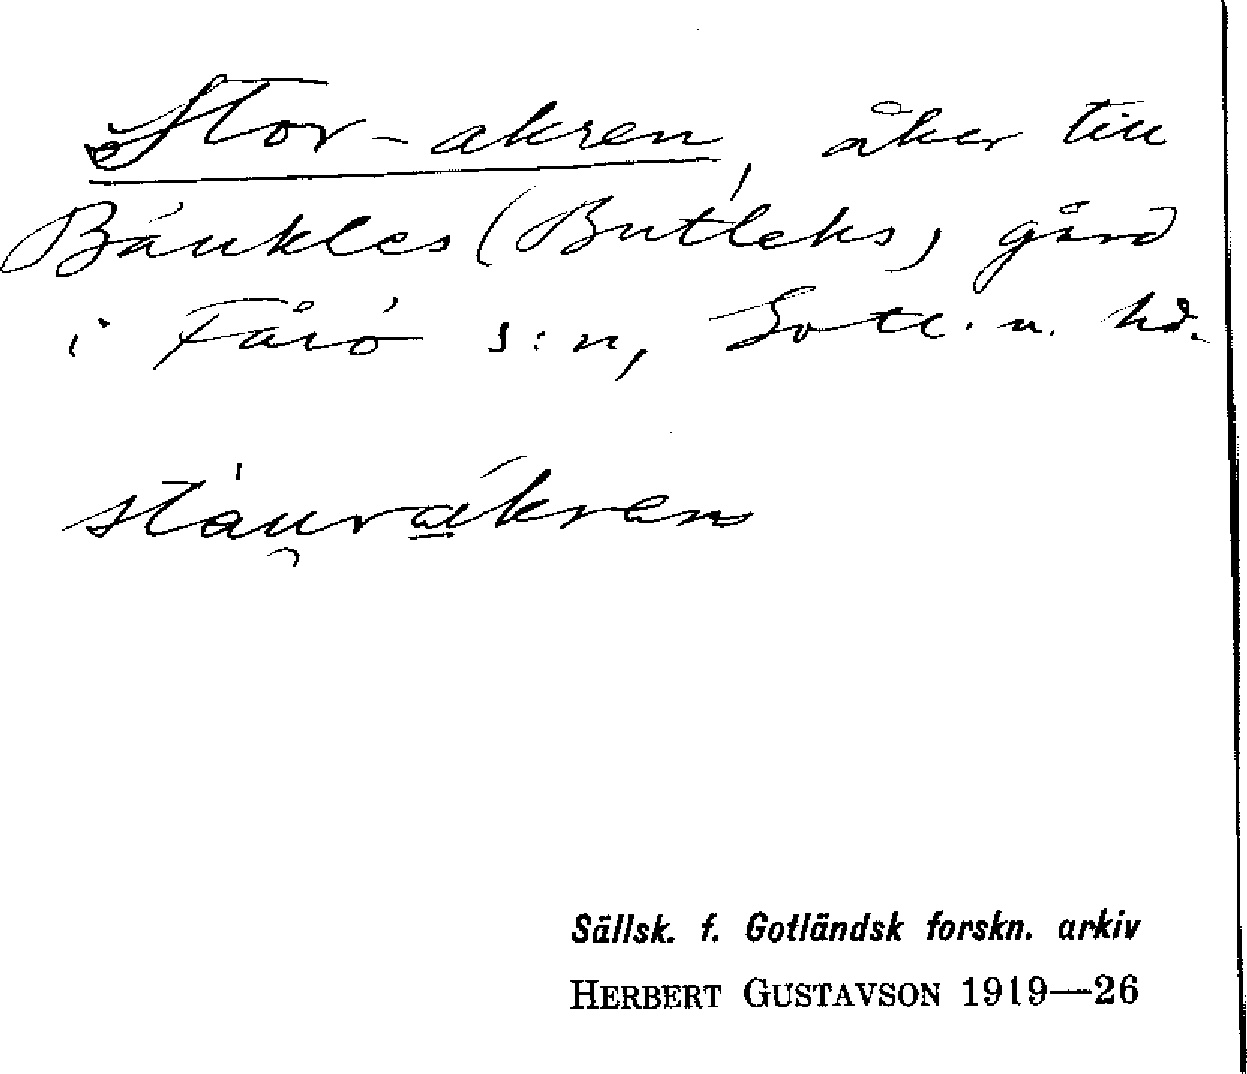 Stor-akren, åker till
Bäukles (Butleks, gård
i Fårö s:n, Gotl. n. hd.
stáurákren
Sällsk. f. Gotländsk forskn. arkiv
HERBERT GUSTAVSON 1919—26